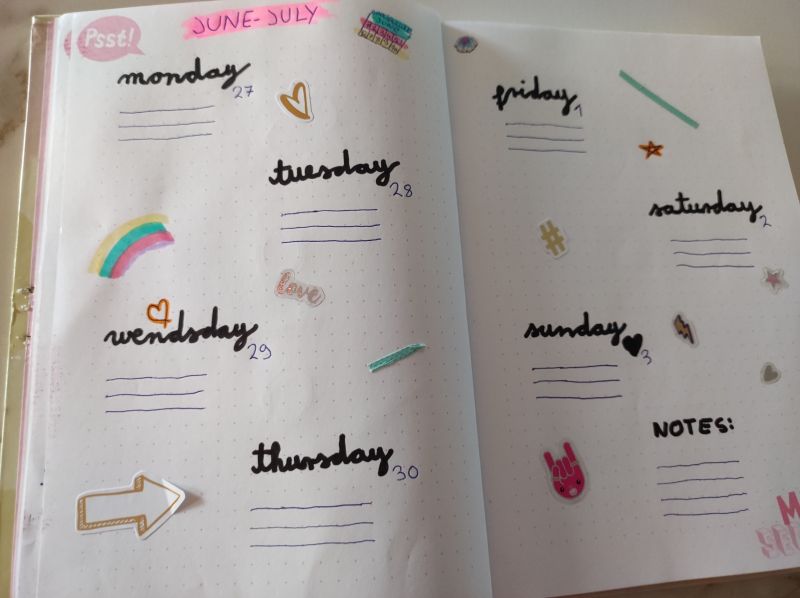 Psst!
JUNE-JULY
monday
27
tuesday
28
love
wendsday
29
thursday
30
friday
1
saturday
2
#
sunday
3
NOTES: